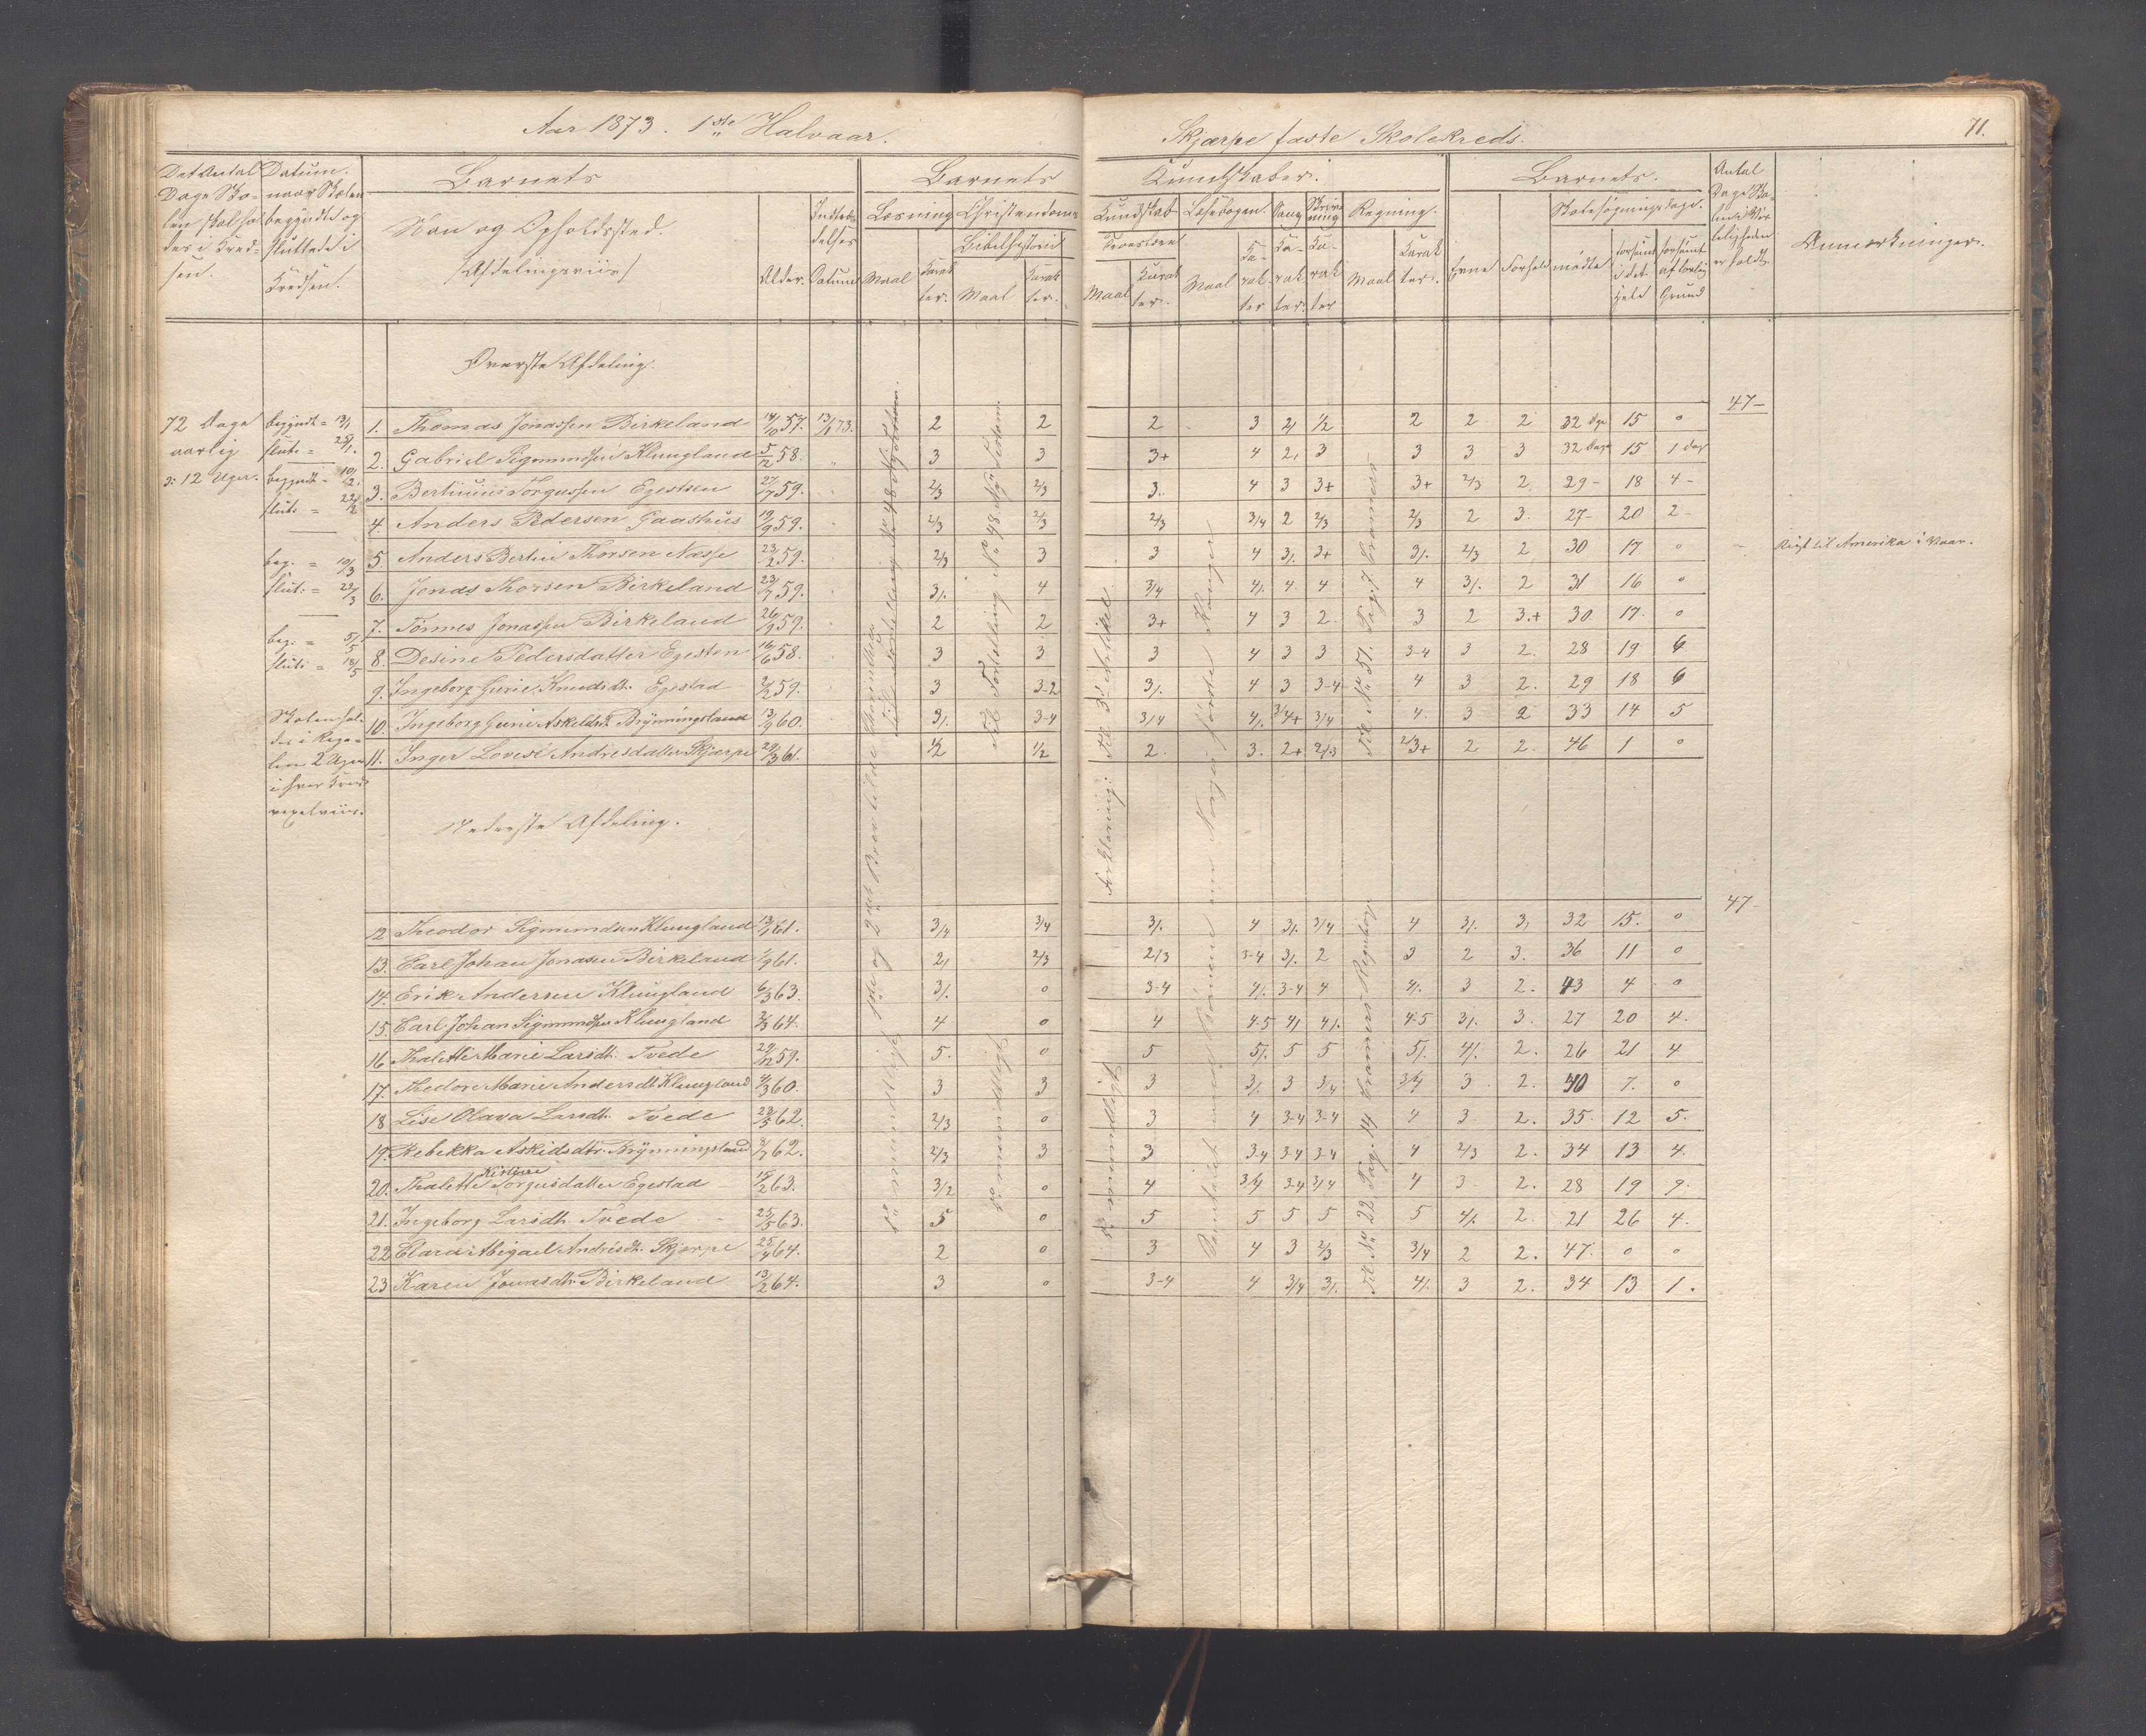 Aar 1873. 1ste Halvaar.
Skjærpe faste Skolekreds.
71.
Det Antal Dage Skolen skal holdes i Kredsen.
Datum. naar Skolen begyndte og sluttede i Kredsen.
Barnets
Navn og Opholdssted.
(Afdelingsviis)
Alder.
Indtrædelses Datum
Barnets
Kundskaber.
Læsning
Maal
Karakter.
Christendoms
Kundskab
Bibelhistorie
Maal
Karakter.
Troeslære
Maal
Karakter.
Læsebogen.
Maal
Karakter
Sang
Karakter.
Skrivning
Karakter
Regning.
Maal
Karakter.
Barnets.
Evne
Forhold
Skolesøgningsdage.
mødte
forsømt i det Hele
forsømt af lovlig Grund
Antal Dage Skolen i Virkeligheden er holdt.
Anmærkninger.
Øverste Afdeling.
72 Dage aarlig
3: 12 Uger.
begyndt = 13/1
slut: = 25/1.
begyndt = 10/2.
slut: = 22/2
beg. = 10/3
slut: = 22/3
beg. = 5/5
slut: = 18/5
47–
1. Thomas Jonassen Birkeland 14/10 57. 13/1 73. 2 2 2 3 2/ 1/2 2 2 2 32 Dge 15 0
2. Gabriel Sigmundsen Klungland 5/12 58. " 3 3 3+ 4 2/ 3 3 3 3 32 Dage 15 1 dag
3. Bertinius Torgussen Egestsen 27/7 59. 2/3 2/3 3. 4 3 3+ 3+ 2/3 2 29– 18 4–
4. Anders Pedersen Gaashus 19/9 59. 2/3 2/3 2/3 3/4 2 2/3 2/3 2 3. 27– 20 2–
5. Anders Bertin Thorsen Næsse 23/2 59. 2/3 3 3 4 3/. 3+ 3/. 2/3 2 30 17 0 Reist til Amerika i Vaar.
6. Jonas Thorsen Birkeland 23/7 59. 3/. 4 3/4 4/. 4 4 4 3/. 2 31 16 0
7. Tönnes Jonassen Birkeland 26/9 59. 2 2 3+ 4 3 2. 3 2 3.+ 30 17. 0
8. Desine Pedersdatter Egesten 16/6 58. 3 3 3 4 3 3 3-4 3 2. 28 19 6
9. Ingeborg Gurie Knudsdt. Egestad 2/2 59. 3 3-2 3/. 4 3 3-4 4 3 2. 29 18 6
10. Ingeborg Gurie Askeldsdt. Brynningsland 13/9 60. 3/. 3-4 3/4 4/. 3/4+ 3/4 4. 3 2 33 14 5
11. Inger Lovise Andriesdatter Skjærpe 29/3 61. 1/2 1/2 2. 3. 2+ 2/3 2/3+ 2 2. 46 1 0
Skolen holdes i Regelen 2 Uger i hver Kreds vexelviis.
Nederste Afdeling.
47–
12 Theodor Sigmundsen Klungland 13/1 61. 3/4 3/4 3/. 4 3/. 3/4 4 3/. 3, 32 15. 0
13. Carl Johan Jonasen Birkeland 1/9 61. 2/ 2/3 2/3 3-4 3/. 2 3 2 3. 36 11 0
14. Erik Andersen Klungland 6/3 63. 3/. 0 3-4 4/. 3-4 4 4/. 3 2. 43 4 0
15. Carl Johan Sigmundsen Klungland 2/3 64. 4 0 4 4-5 4/ 4/. 4-5 3/. 3. 27 20 4.
16 Thalette Marie Larsdt. Tvede 29/12 59. 5. 0 5 5/. 5 5 5/. 4/. 2. 26 21 4
17. Thedore Marie Andersdt Klungland 4/3 60. 3 3 3 3/. 3 3/4 3/4 3 2. 40 7. 0
18 Lise Olava Larsdt. Tvede 22/5 62. 2/3 0 3 4 3-4 3-4 4 3 2. 35. 12 5.
19. Rebekka Askildsdtr. Brynningsland 8/7 62. 2/3 3 3 3-4 3-4 3-4 4 2/3 2. 34 13 4.
20. Thalette Kirstine Torgusdatter Egestad 15/2 63. 3/2 0 4 3/4 3-4 3/4 4 3 2. 28 19 9.
21. Ingeborg Larsdt. Tvede 25/5 63. 5 0 5 5 5 5 5 4/. 2. 21 26 4.
22 Clara Abigael Andrisdt. Skjærpe 25/4 64. 2 0 3 4 3 2/3 3/4 2 2. 47. 0 0
23 Karen Jonasdtr. Birkeland 13/2 64. 3 0 3-4 4 3/4 3/. 4/. 3 2. 34 13 1.
Til Fortelling No 48 Nye Testam.
Forklaring: Til 3die Artikel
Til No 51. Pag: 7 Cramers
Til No 22 Pag. 14 Cramers Regnebog